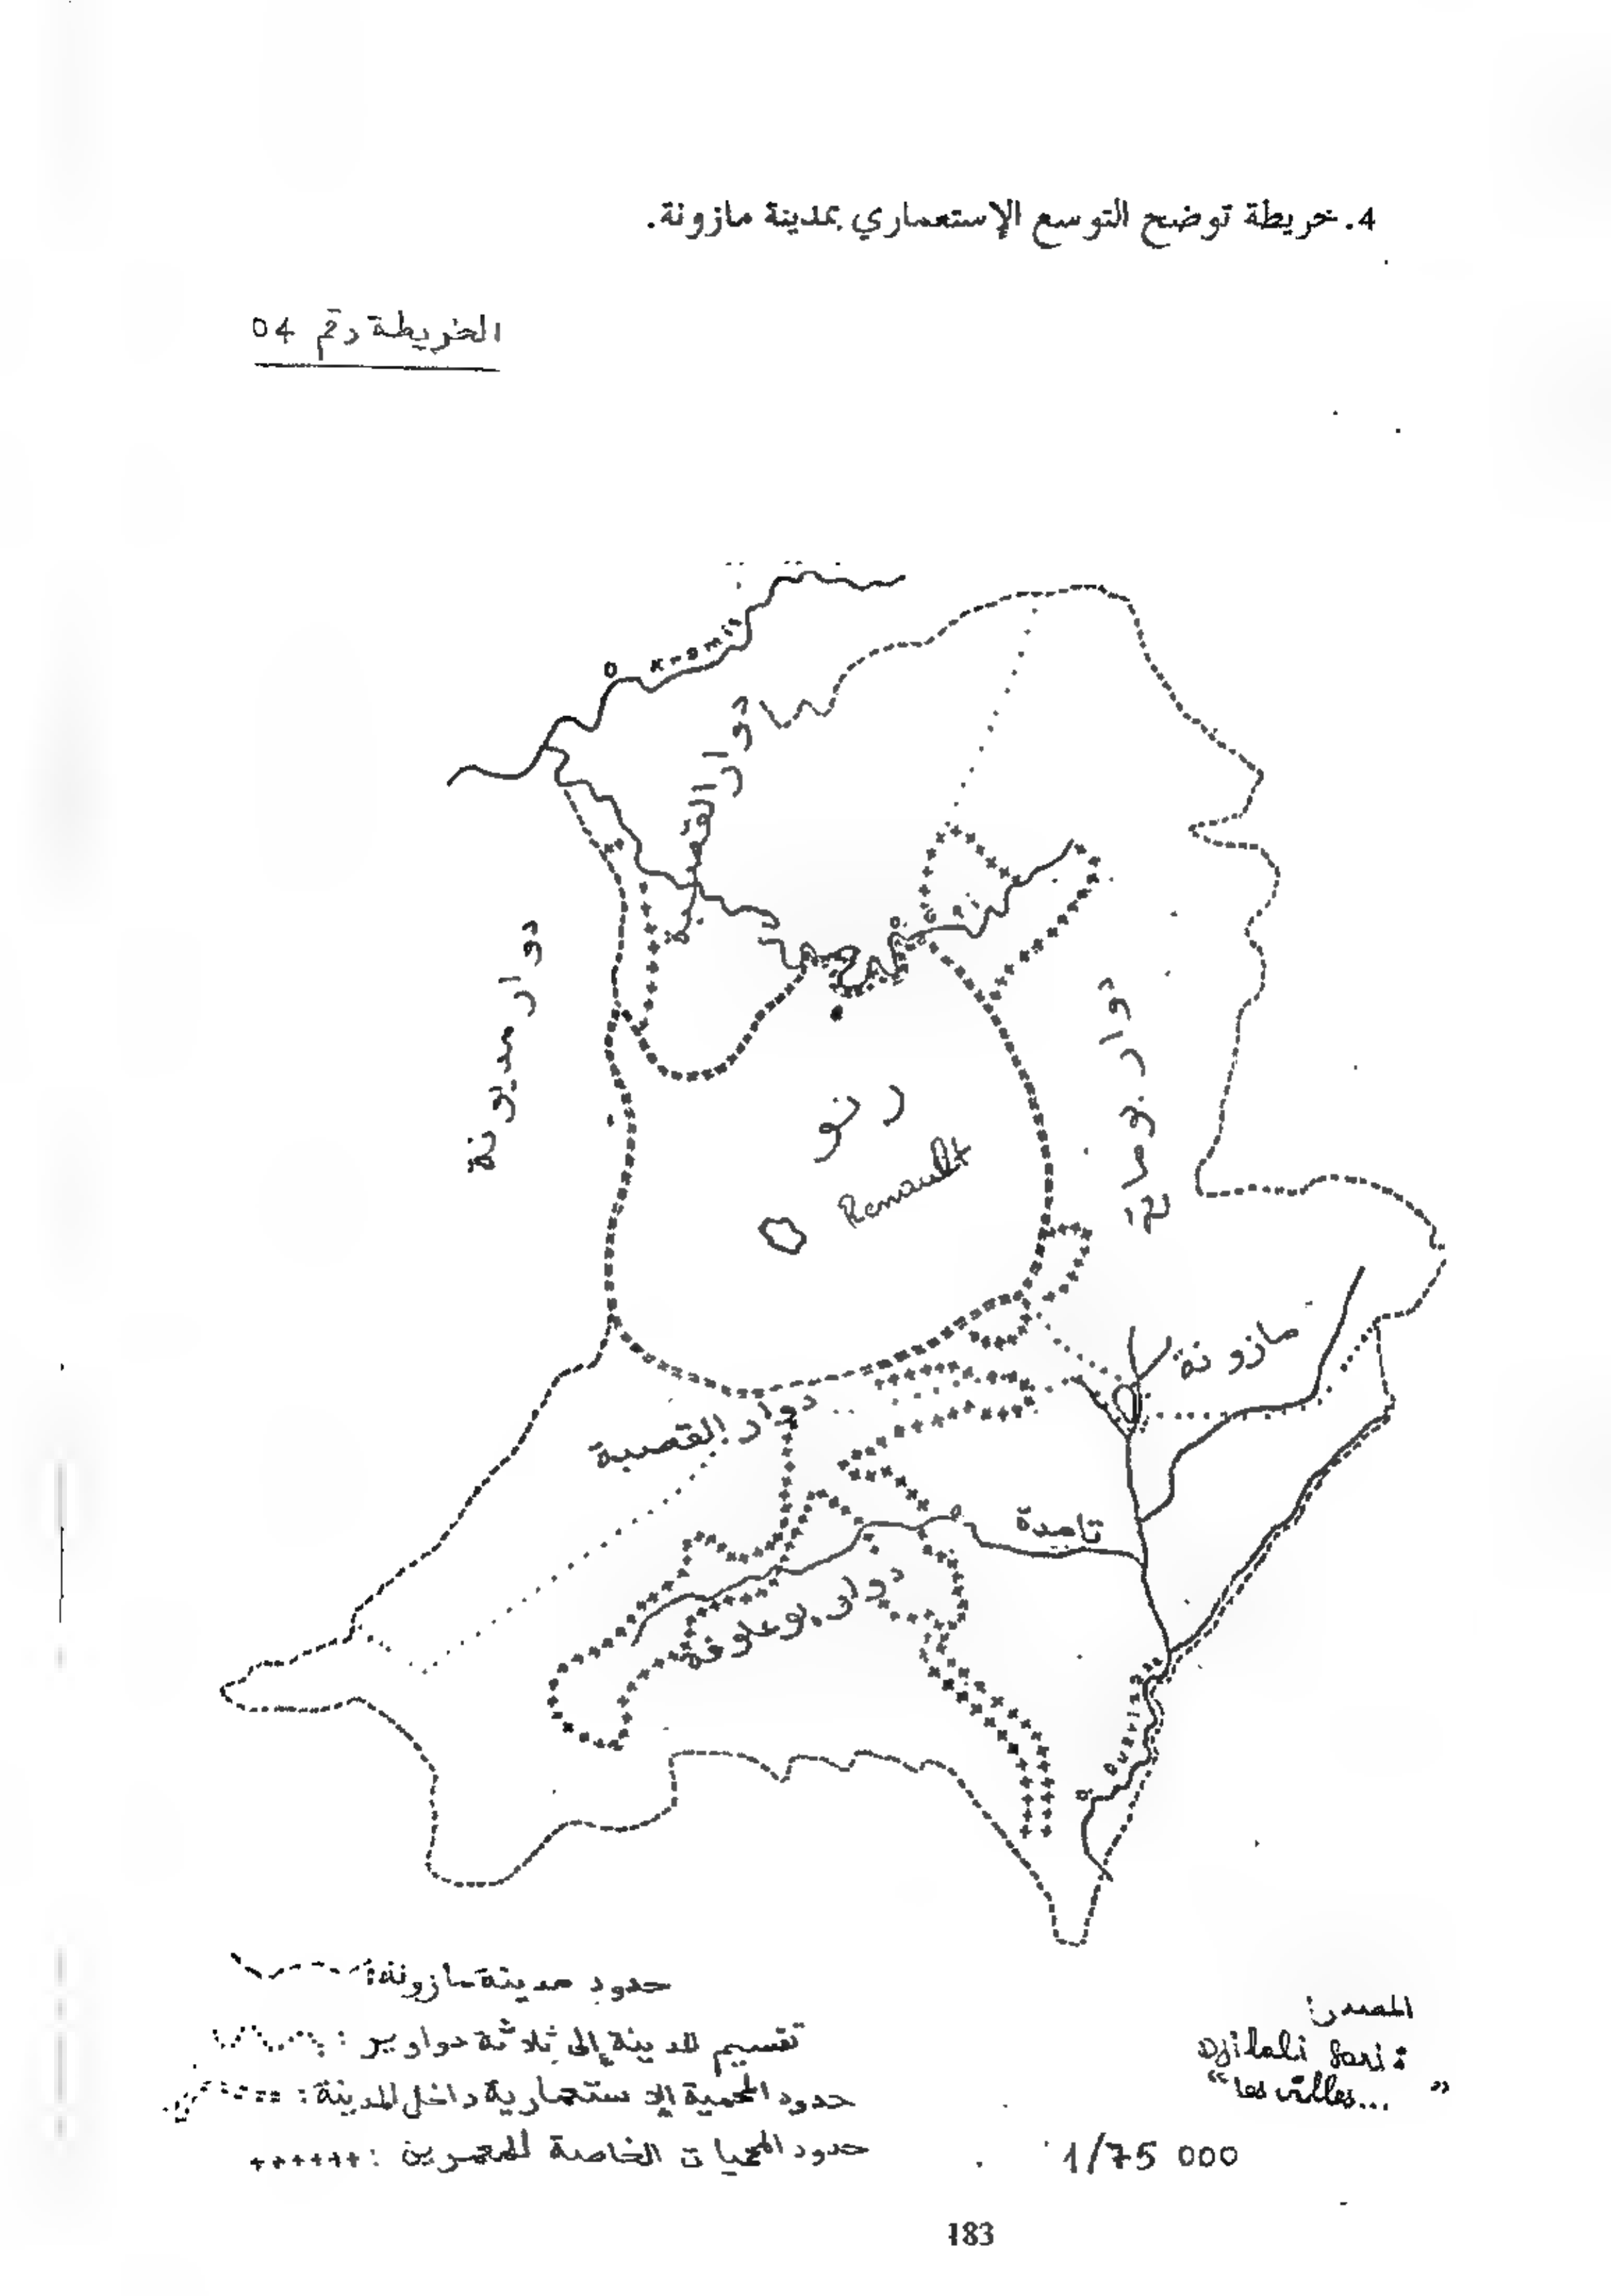 4. خريطة توضح التوسع الإستعماري بمدينة مازونة.
الخريطة رقم 04
O Kramis
دوار القصبة
دوار مديونة
دوار بوماتع
رنو
Renault
مازونة
دوار القصبة
تامدة
دوار بوعلوفة
O Ouariz
حدود مدينة مازونة:
تقسيم المدينة إلى ثلاثة دواوير :
حدود المحمية الإستعمارية داخل المدينة :
حدود المحميات الخاصة للمعمرين : ++++++
المصدر:
Djilali Sari :
“les villes... ”
1/75 000
183